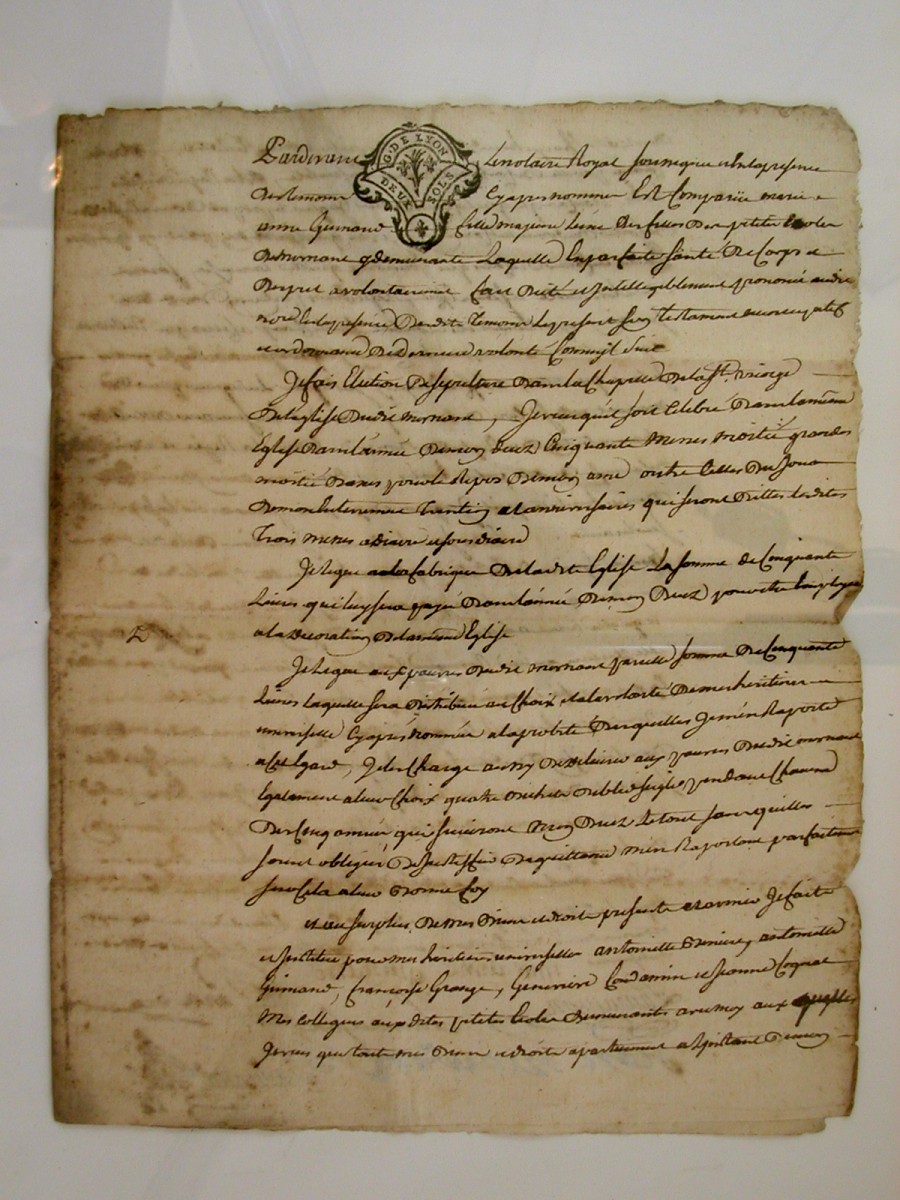 Pardevant Le notaire Royal soussigné et En la presence
Des temoins Cy apres nommés Est Comparüe marie
G. DE LYON
DEUX SOLS
anne Guinand fille majeure L'une Des filles Des petites Ecoles
De mornant y demeurante Laquelle En parfaite Santé De Corps et
Desprit a volontairement fait Dicté et Intelligiblement prononcé audit
no.re En la presence Desdits Temoins Le present Son testament nuncupatif
et ordonnance De Derniere volonté Comme s'il Suit
Je fais Election De sepulture Dans la Chapelle De la S.te vierge
De L'église Dudit mornant, Je veux qu'il soit Celebré Dans la même
Eglise Dans L'année De mon Decez Cinquante Messes moitié grandes
moitié Basses pour le Repos De mon ame outre Celles Du Jour
De mon Enterrement Trentin et anniversaires qui seront Dittes Lesdites
Trois messes a Diacre et sous diacre
Je Legue a la fabrique De ladite Eglise La somme de Cinquante
Livres qui luy sera payée Dans L'année De mon Decez pour etre Employée
a la Decoration De la même Eglise
Je Legue aux pauvres Dudit mornant pareille somme De Cinquante
Livres laquelle sera Distribuée au Choix et a la volonté De mes heritieres
universelles Cy aprés nommées a la probité Desquelles Je m'en Raporte
a Cet Egard, Je les Charge aussy De Delivrer aux pauvres Dudit mornant
Egalement a leur Choix quatre Bichets De bled seigle pendant Chacune
Des Cinq années qui suivront mon Decez Le tout sans qu'elles
soient obligées De Justiffier De quittance m'en Raportant parfaitement
sur Cela a leur Bonne foy
Et au surplus De mes Biens et droits presents et avenir Je fais
et Institue pour mes heritieres universelles antoinette antoinette
Guinand, françoise Grange, Genevieve Condamin et Jeanne Cognat
Mes Collegues auxdites petites Ecoles Demeurantes avec moy aux quelles
Je veux que tous mes Biens et droits apartiennent a L'instant De mon